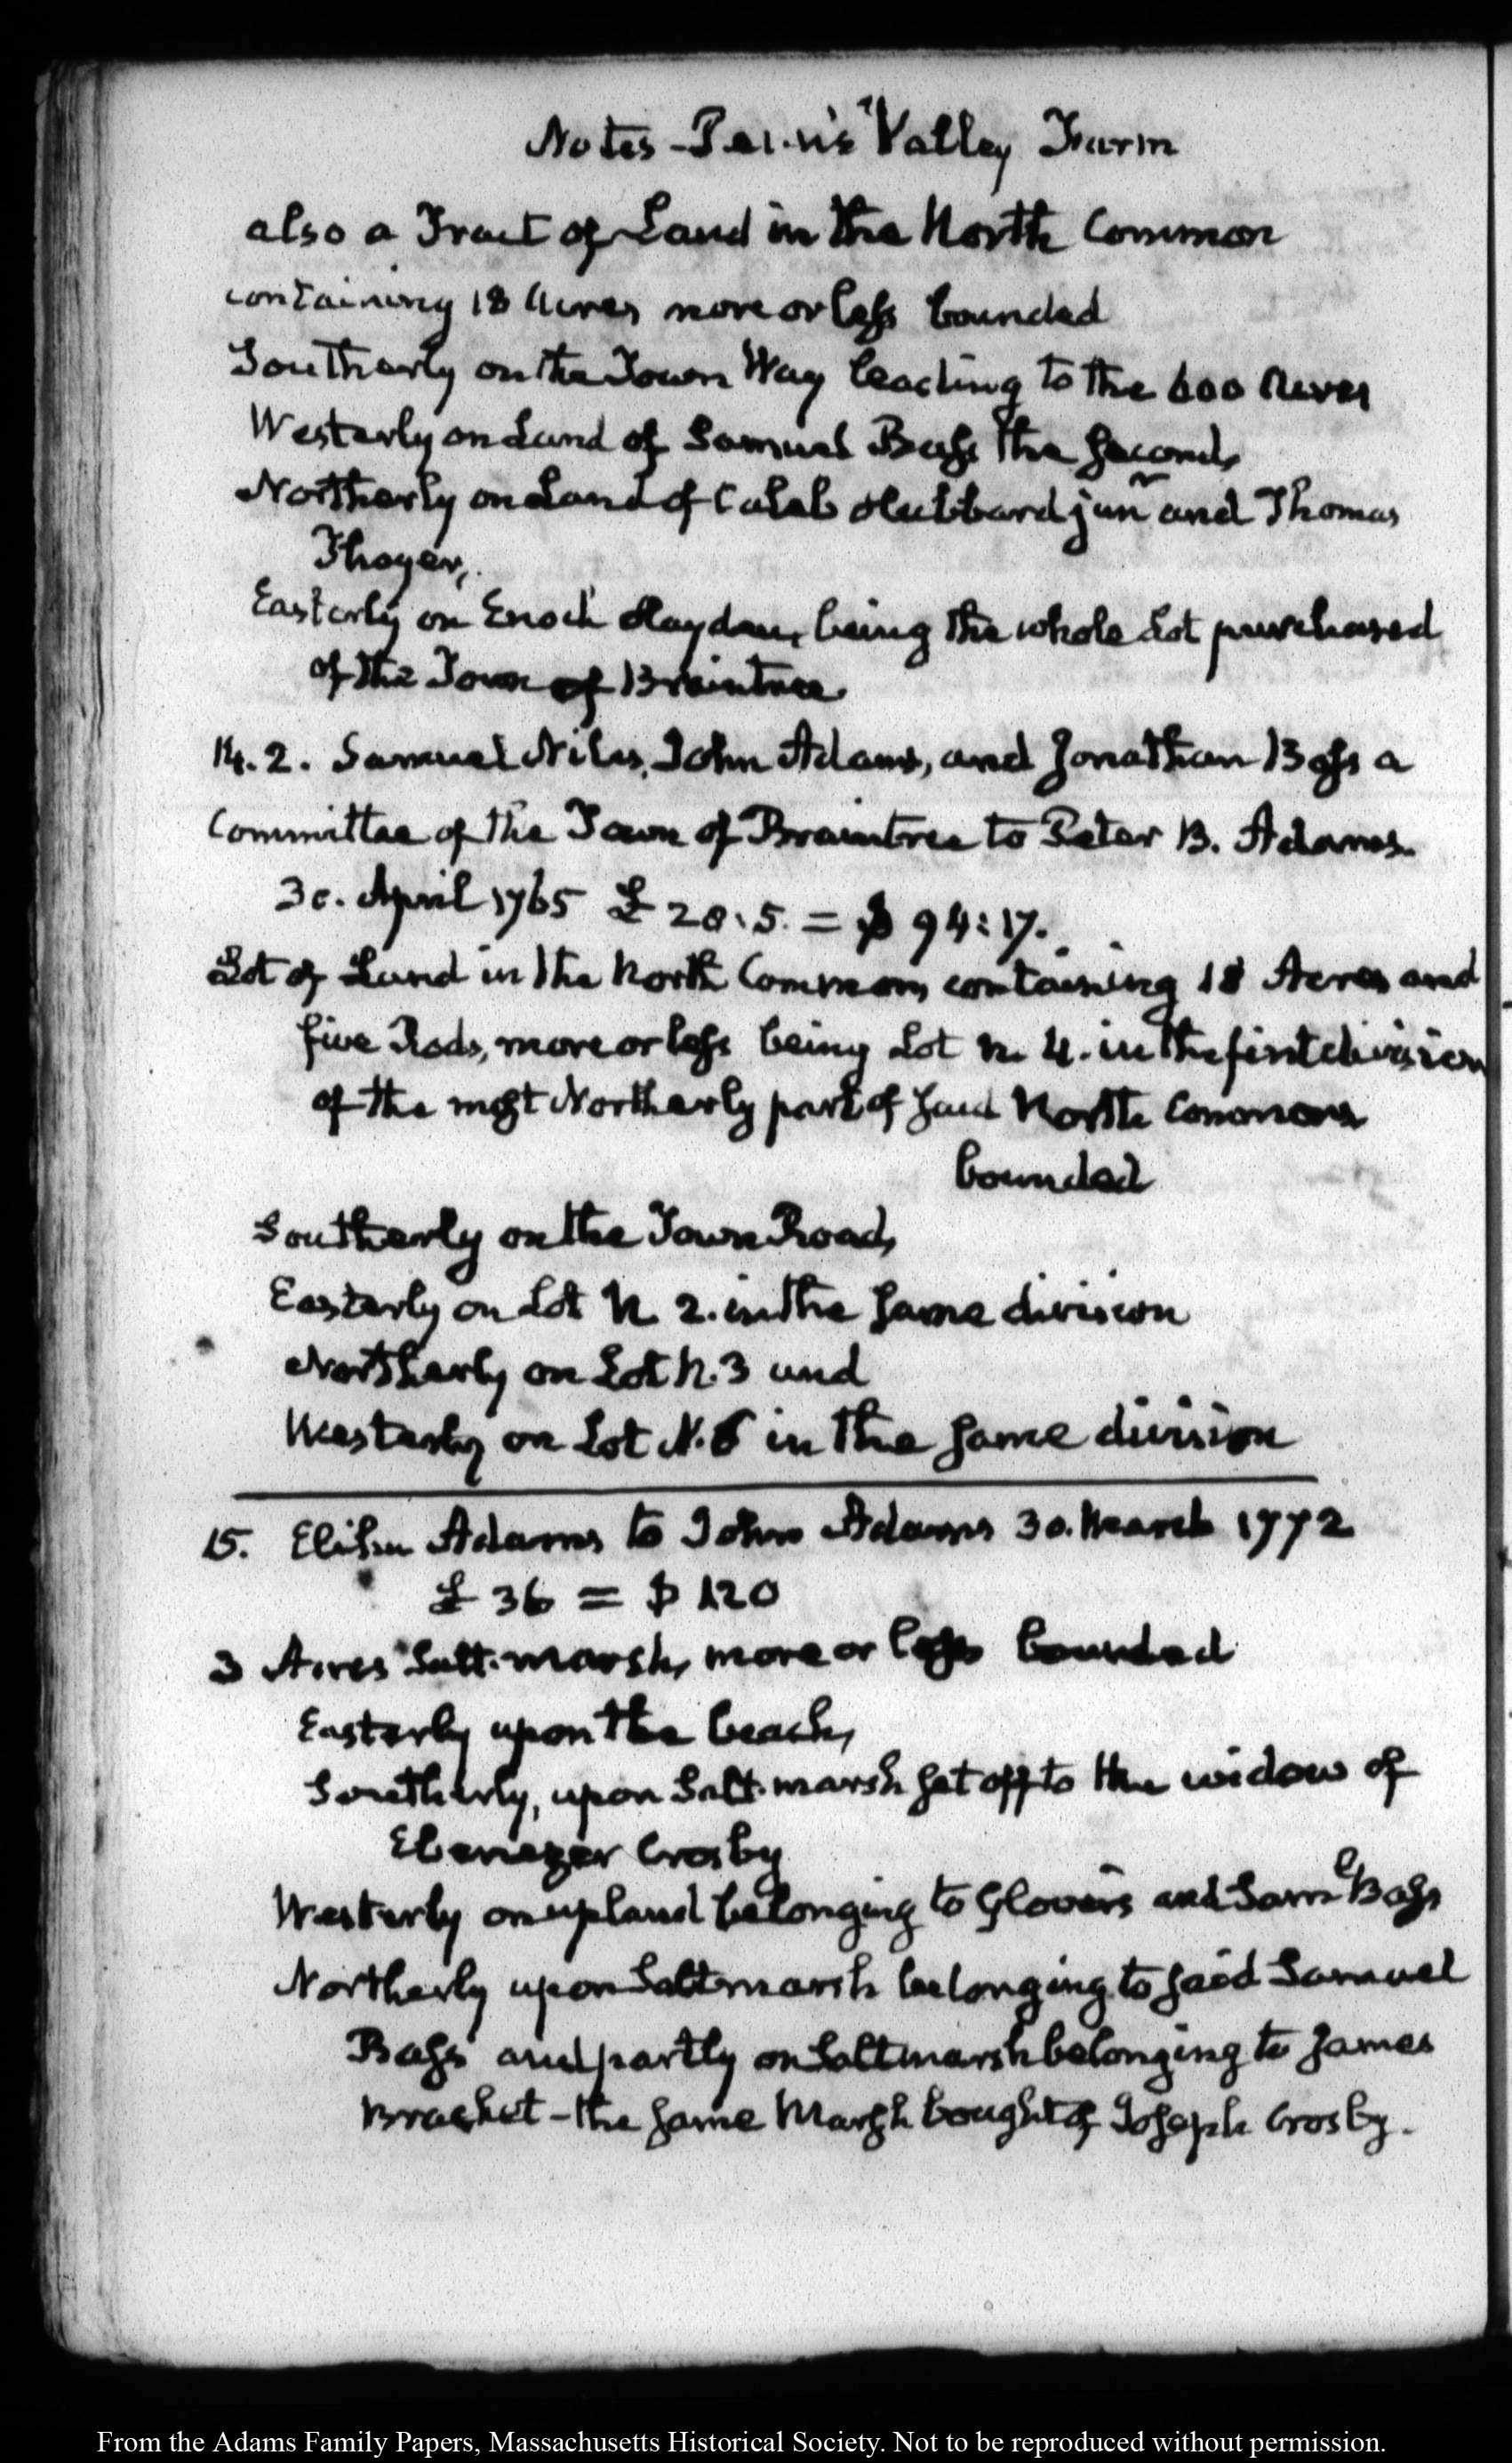 Notes - Penn's Valley Farm
also a Tract of Land in the North Common
containing 18 Acres more or less bounded
Southerly on the Town Way leading to the 600 Acres
Westerly on Land of Samuel Bass the second,
Northerly on Land of Caleb Hubbard junr and Thomas
Thayer,
Easterly on Enoch Hayden, being the whole Lot purchased
of the Town of Braintree.
14. 2. Samuel Niles, John Adams, and Jonathan Bass a
Committee of the Town of Braintree to Peter B. Adams.
30. April 1765 £ 28.5. = $ 94:17.
Lot of Land in the North Common, containing 18 Acres and
five Rods, more or less being Lot n. 4. in the first division
of the most Northerly part of said North Commons
bounded
Southerly on the Town Road,
Easterly on Lot N. 2. in the same division
Northerly on Lot N. 3 and
Westerly on Lot N. 6 in the same division
15. Elihu Adams to John Adams 30. March 1772
£ 36 = $ 120
3 Acres Salt-marsh, more or less bounded
Easterly upon the beach,
Southerly, upon Salt-marsh set off to the widow of
Ebenezer Crosby
Westerly on upland belonging to Glovers and Saml Bass
Northerly upon Saltmarsh belonging to said Samuel
Bass and partly on Saltmarsh belonging to James
Bracket - the same Marsh bought of Joseph Crosby.
From the Adams Family Papers, Massachusetts Historical Society. Not to be reproduced without permission.